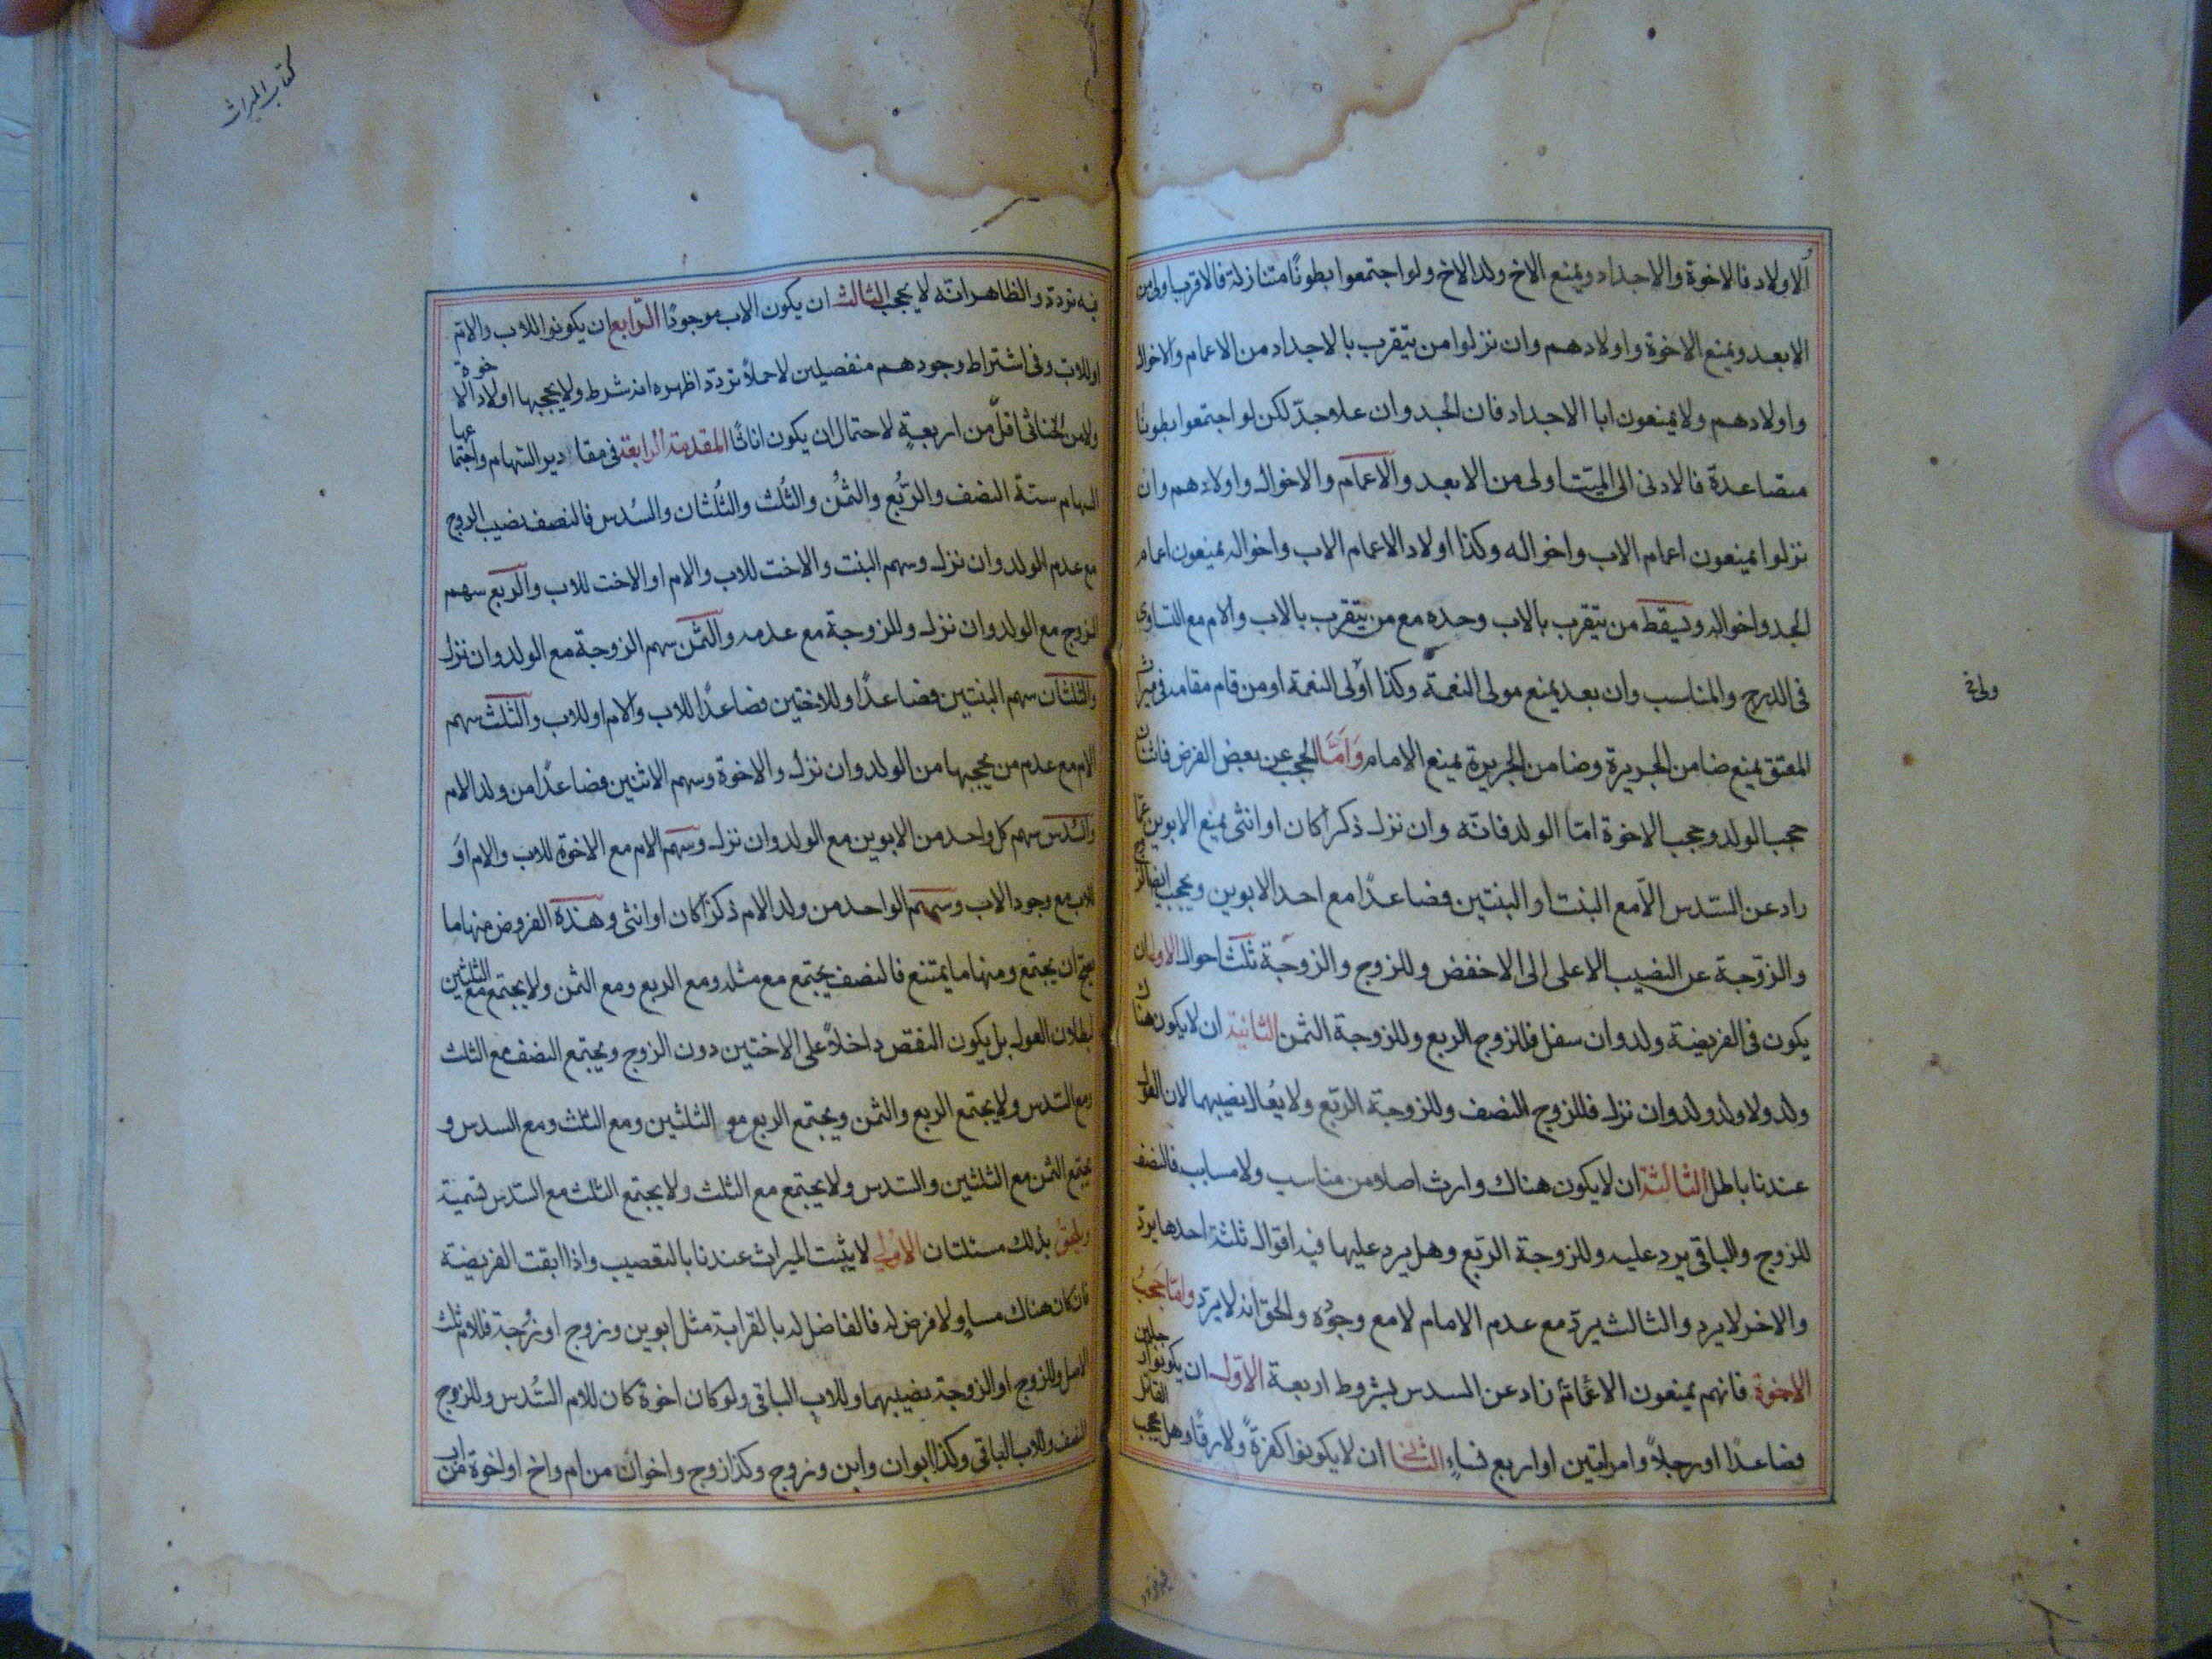 الاولاد فالاخوة والاجداد ويمنع الاخ ولد الاخ ولو اجتمعوا بطونًا متنازلة فالاقرب اولى من
الابعد ويمنع الاخوة واولادهم وان نزلوا من يتقرب بالاجداد من الاعمام والاخوال
واولادهم ولا يمنعون ابا الاجداد فان الجد وان علا جدّ لكن لو اجتمعوا بطونًا
متصاعدة فالادنى الى الميّت اولى من الابعد والاعمام والاخوال واولادهم وان
نزلوا يمنعون اعمام الاب واخواله وكذا اولاد الاعمام الاب واخواله يمنعون اعمام
الجد واخواله ويسقط من يتقرب بالاب وحده مع من يتقرب بالاب والام مع التساوى
فى الدرج والمناسب وان بعد يمنع مولى النعمة وكذا اولى النعمة او من قام مقامه فى ميراث
المعتق يمنع ضامن الجريرة وضامن الجريرة يمنع الامام وَاَمّا الحجب عن بعض الفرض فاثنان
حجب الولد وحجب الاخوة امّا الولد فانّه وان نزل ذكرًا كان او انثى يمنع الابوين عمّا
زاد عن السّدس الّا مع البنت او البنتين فصاعدًا مع احد الابوين ويحجب ايضا الزوج
والزوّجة عن النصيب الاعلى الى الاخفض وللزوج والزوجة ثلث احوال الاولى ان
يكون فى الفريضة ولد وان سفل فللزوج الربع وللزوجة الثمن الثانية ان لا يكون هناك
ولد ولا ولد ولد وان نزل فللزوج النصف وللزوجة الربّع ولا يُعال نصيبهما لان العول
عندنا باطل الثالثة ان لا يكون هناك وارث اصلا من مناسب ولا مسابب فالنصف
للزوج والباقى يرد عليه وللزوجة الربّع وهل يرد عليها فيه اقوال ثلثة احدها يردّ
والاخر لا يرد والثالث يردّ مع عدم الامام لا مع وجوده والحق انه لا يرد وامّا حَجبُ
الاخوة فانهم يمنعون الام عمّا زاد عن السدس بشروط اربعة الاوّل ان يكونوا رجلين
فصاعدًا او رجلاً وامراتين او اربع نساءٍ الثانى ان لا يكونوا كفرةً ولا رقًا وهل يحجب القاتل
ولى فى
كتاب الميراث
فيه تردد والظاهر انّه لا يحجب الثالث ان يكون الاب موجودًا الرّابع ان يكونوا للاب والام
او للاب وفى اشتراط وجودهم منفصلين لا حملاً تردّد اظهره انه شرط ولا يحجبها اولاد الاخوة
ولا من الخناثى اقلّ من اربعةٍ لاحتمال ان يكون اناثًا المقدمة الرابعة فى مقادير السّهام واجتماعها
السهام ستة النصف والرّبُع والثمُن والثُلث والثُلثان والسُدس فالنصف نصيب الزوج
مع عدم الولد وان نزل وسهم البنت والاخت للاب والام او الاخت للاب والربع سهم
الزوج مع الولد وان نزل وللزوجة مع عدمه والثمن سهم الزوجة مع الولد وان نزل
والثلثان سهم البنتين فصاعدًا وللاختين فصاعدًا للاب والام او للاب والثلث سهم
الام مع عدم من يحجبها من الولد وان نزل والاخوة وسهم الاثنين فصاعدًا من ولد الام
والسُدس سهم كل واحد من الابوين مع الولد وان نزل وسهم الام مع الاخوة للاب والام اَو
للاب مع وجود الاب وسهم الواحد من ولد الام ذكرًا كان او انثى وهذه الفروض منها ما
يصح ان يجتمع ومنها ما يمتنع فالنصف يجتمع مع مثله ومع الربع ومع الثمن ولا يجتمع مع الثلثين
لبطلان العول بل يكون النقص داخلاً على الاختين دون الزوج ويجتمع النصف مع الثلث
ومع السّدس ولا يجتمع الربع والثمن ويجتمع الربع مع الثلثين ومع الثلث ومع السدس و
يجتمع الثمن مع الثلثين والسّدس ولا يجتمع مع الثلث ولا يجتمع الثلث مع السّدس تسمية
ويلحق بذلك مسئلتان الاولى لا يثبت الميراث عندنا بالتعصيب واذا ابقت الفريضة
فان كان هناك مساوٍ لا فرض له فالفاضل له بالقرابة مثل ابوين وزوج او زوجة فللام ثلث
الاصل وللزوج او الزوجة نصيبهما وللاب الباقى ولو كان اخوة كان للام السُدس وللزوج
النصف وللاب الباقى وكذا ابوان وابن وزوج وكذا زوج واخوان من ام واخ او اخوة من اب